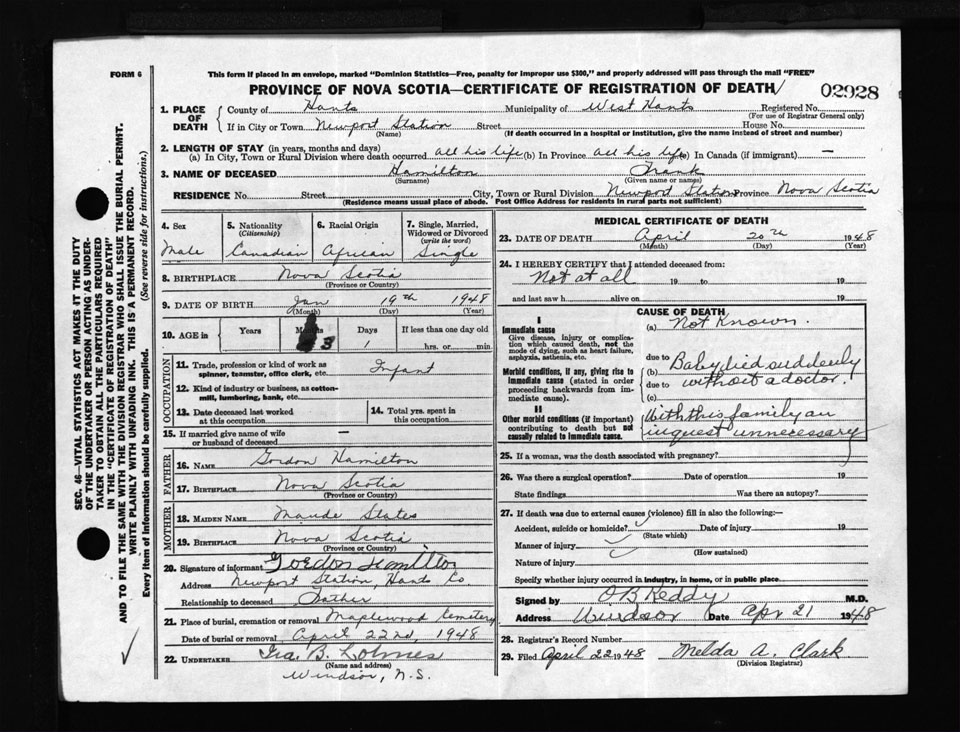 FORM 6
This form if placed in an envelope, marked "Dominion Statistics—Free, penalty for improper use $300," and properly addressed will pass through the mail "FREE"
PROVINCE OF NOVA SCOTIA—CERTIFICATE OF REGISTRATION OF DEATH
02928
1. PLACE OF DEATH
County of Hants Municipality of West Hants Registered No.
(For use of Registrar General only)
If in City or Town Newport Station Street House No.
(Name) (If death occurred in a hospital or institution, give the name instead of street and number)
2. LENGTH OF STAY (in years, months and days)
(a) In City, Town or Rural Division where death occurred all his life (b) In Province all his life (c) In Canada (if immigrant) —
3. NAME OF DECEASED Hamilton Frank
(Surname) (Given name or names)
RESIDENCE No. Street City, Town or Rural Division Newport Station Province Nova Scotia
(Residence means usual place of abode. Post Office Address for residents in rural parts not sufficient)
4. Sex
Male
5. Nationality
(Citizenship)
Canadian
6. Racial Origin
African
7. Single, Married, Widowed or Divorced
(write the word)
Single
8. BIRTHPLACE Nova Scotia
(Province or Country)
9. DATE OF BIRTH Jan 19th 1948
(Month) (Day) (Year)
10. AGE in Years Months Days If less than one day old
3 1 hrs. or min.
OCCUPATION
11. Trade, profession or kind of work as spinner, teamster, office clerk, etc. Infant
12. Kind of industry or business, as cotton-mill, lumbering, bank, etc.
13. Date deceased last worked at this occupation
14. Total yrs. spent in this occupation
15. If married give name of wife or husband of deceased —
FATHER
16. NAME Gordon Hamilton
17. BIRTHPLACE Nova Scotia
(Province or Country)
MOTHER
18. MAIDEN NAME Maude States
19. BIRTHPLACE Nova Scotia
(Province or Country)
20. Signature of informant Gordon Hamilton
Address Newport Station, Hants Co
Relationship to deceased Father
21. Place of burial, cremation or removal Maplewood Cemetery
Date of burial or removal April 22nd, 1948
22. UNDERTAKER Ira B. Lohnes
(Name and address)
Windsor, N.S.
MEDICAL CERTIFICATE OF DEATH
23. DATE OF DEATH April 20th 1948
(Month) (Day) (Year)
24. I HEREBY CERTIFY that I attended deceased from:
Not at all 19 to 19
and last saw h alive on 19
CAUSE OF DEATH
I
Immediate cause
Give disease, injury or complication which caused death, not the mode of dying, such as heart failure, asphyxia, asthenia, etc.
(a) Not Known.
due to
Morbid conditions, if any, giving rise to immediate cause (stated in order proceeding backwards from immediate cause).
(b) Baby died suddenly
due to without a doctor.
(c)
II
Other morbid conditions (if important) contributing to death but not causally related to immediate cause.
With this family an
inquest unnecessary
25. If a woman, was the death associated with pregnancy?
26. Was there a surgical operation? Date of operation 19
State findings Was there an autopsy?
27. If death was due to external causes (violence) fill in also the following:—
Accident, suicide or homicide? Date of injury 19
(State which)
Manner of injury
(How sustained)
Nature of injury
Specify whether injury occurred in industry, in home, or in public place.
Signed by O B Keddy M.D.
Address Windsor Date Apr 21 1948
28. Registrar's Record Number
29. Filed April 22 1948 Melda A. Clark
(Division Registrar)
SEC. 46—VITAL STATISTICS ACT MAKES IT THE DUTY
OF THE UNDERTAKER OR PERSON ACTING AS UNDER-
TAKER TO OBTAIN ALL THE PARTICULARS REQUIRED
IN THE "CERTIFICATE OF REGISTRATION OF DEATH"
AND TO FILE THE SAME WITH THE DIVISION REGISTRAR WHO SHALL ISSUE THE BURIAL PERMIT.
WRITE PLAINLY WITH UNFADING INK. THIS IS A PERMANENT RECORD.
Every item of information should be carefully supplied. (See reverse side for instructions.)